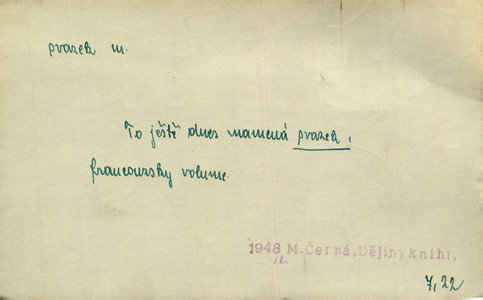 svazek m.
To ještě dnes znamená svazek,
francouzsky volume.
1948 M.Černá,Dějiny kniht,
7,22